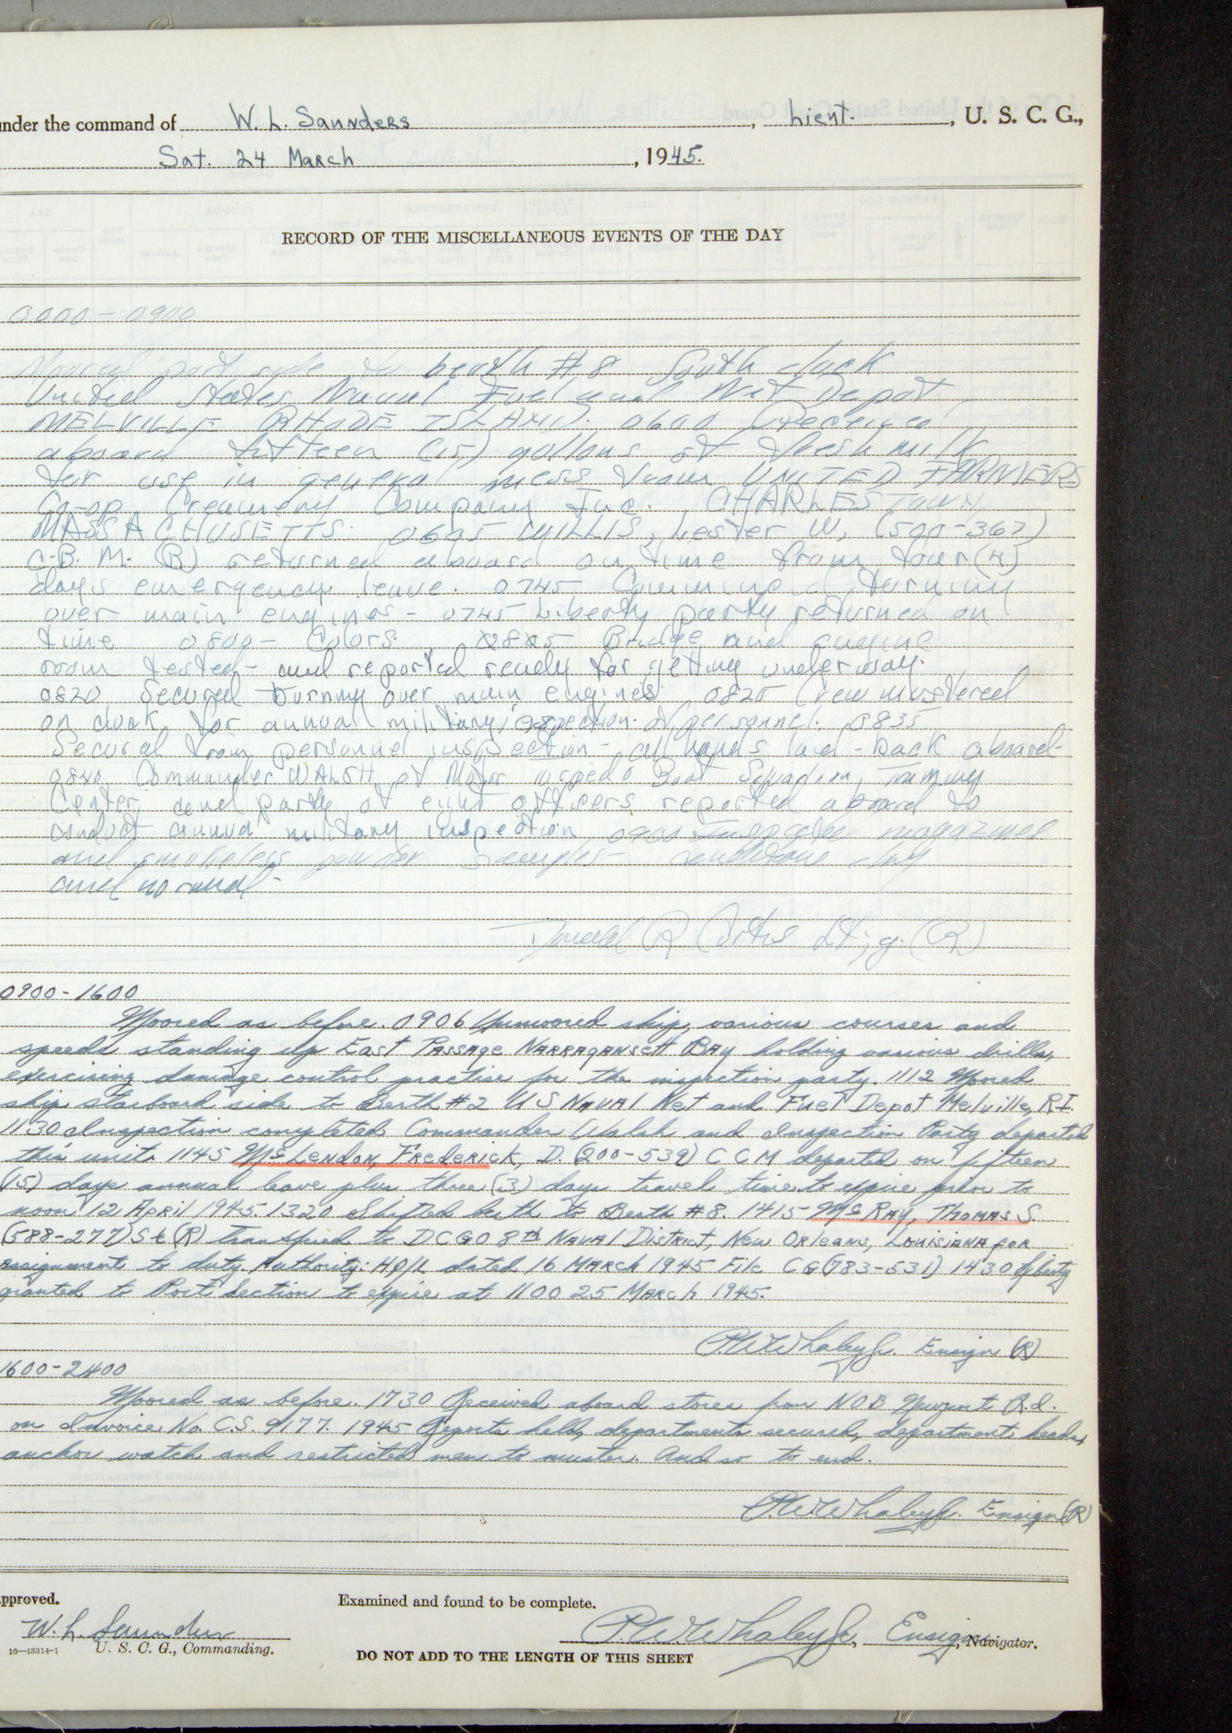 under the command of W. L. Saunders, Lieut., U. S. C. G.,
Sat. 24 March, 1945.
RECORD OF THE MISCELLANEOUS EVENTS OF THE DAY
0000-0900
Moored port side to berth #8 South dock
United States Naval Fuel and Net Depot,
MELVILLE RHODE ISLAND. 0600 Received
aboard fifteen (15) gallons of fresh milk
for use in general mess from UNITED FARMERS
Co-op Creamery Company Inc. CHARLESTOWN,
MASSACHUSETTS. 0605 WILLIS, Lester W, (500-367)
C.B.M. (R) returned aboard on time from four (4)
days emergency leave. 0745 Commenced turning
over main engines - 0745 Liberty party returned on
time 0800 - Colors. Bridge and engine
room tested - and reported ready for getting underway.
0820 Secured turning over main engines 0825 Crew mustered
on dock for annual military inspection of personnel. 0835
Secured from personnel inspection - all hands back aboard -
0840 Commander WALSH of Motor Torpedo Boat Squadron, Training
Center, and party of officers reported aboard to
conduct annual military inspection 0900 Inspected magazines
and smokeless powder samples - conditions dry
and normal -
Donald R Lt. j.g. (R)
0900-1600
Moored as before. 0906 Unmoored ship, various courses and
speeds standing up East Passage Narragansett Bay holding various drills,
exercising damage control practise for the inspection party. 1112 Moored
ship starboard side to Berth #2 U S Naval Net and Fuel Depot Melville, R.I.
1130 Inspection completed Commander Walsh and Inspection Party departed
this unit. 1145 McLendon, Frederick, D. (200-539) C C M departed on fifteen
(15) days annual leave plus three (3) days travel time to expire prior to
noon 12 April 1945. 1320 Shifted berth to Berth #8. 1415 - McRay, Thomas S
(588-277) St (R) transferred to D C G O 8th Naval District, New Orleans, Louisiana for
assignment to duty. Authority: Hdq. dated 16 March 1945 File CG (783-631) 1430 Liberty
granted to Port Section to expire at 1100 25 March 1945.
P.W. Whaley Jr. Ensign (R)
1600-2400
Moored as before. 1730 Received aboard stores from N O B Newport R.I.
on Invoice No. C.S. 9177. 1945 Reports held, departments secured, department heads,
anchor watch and restricted men to muster. And so to end.
P.W. Whaley Jr. Ensign (R)
Approved.
Examined and found to be complete.
W. L. Saunders
P.W. Whaley Jr., Ensign, Navigator.
16-13314-1 U. S. C. G., Commanding.
DO NOT ADD TO THE LENGTH OF THIS SHEET